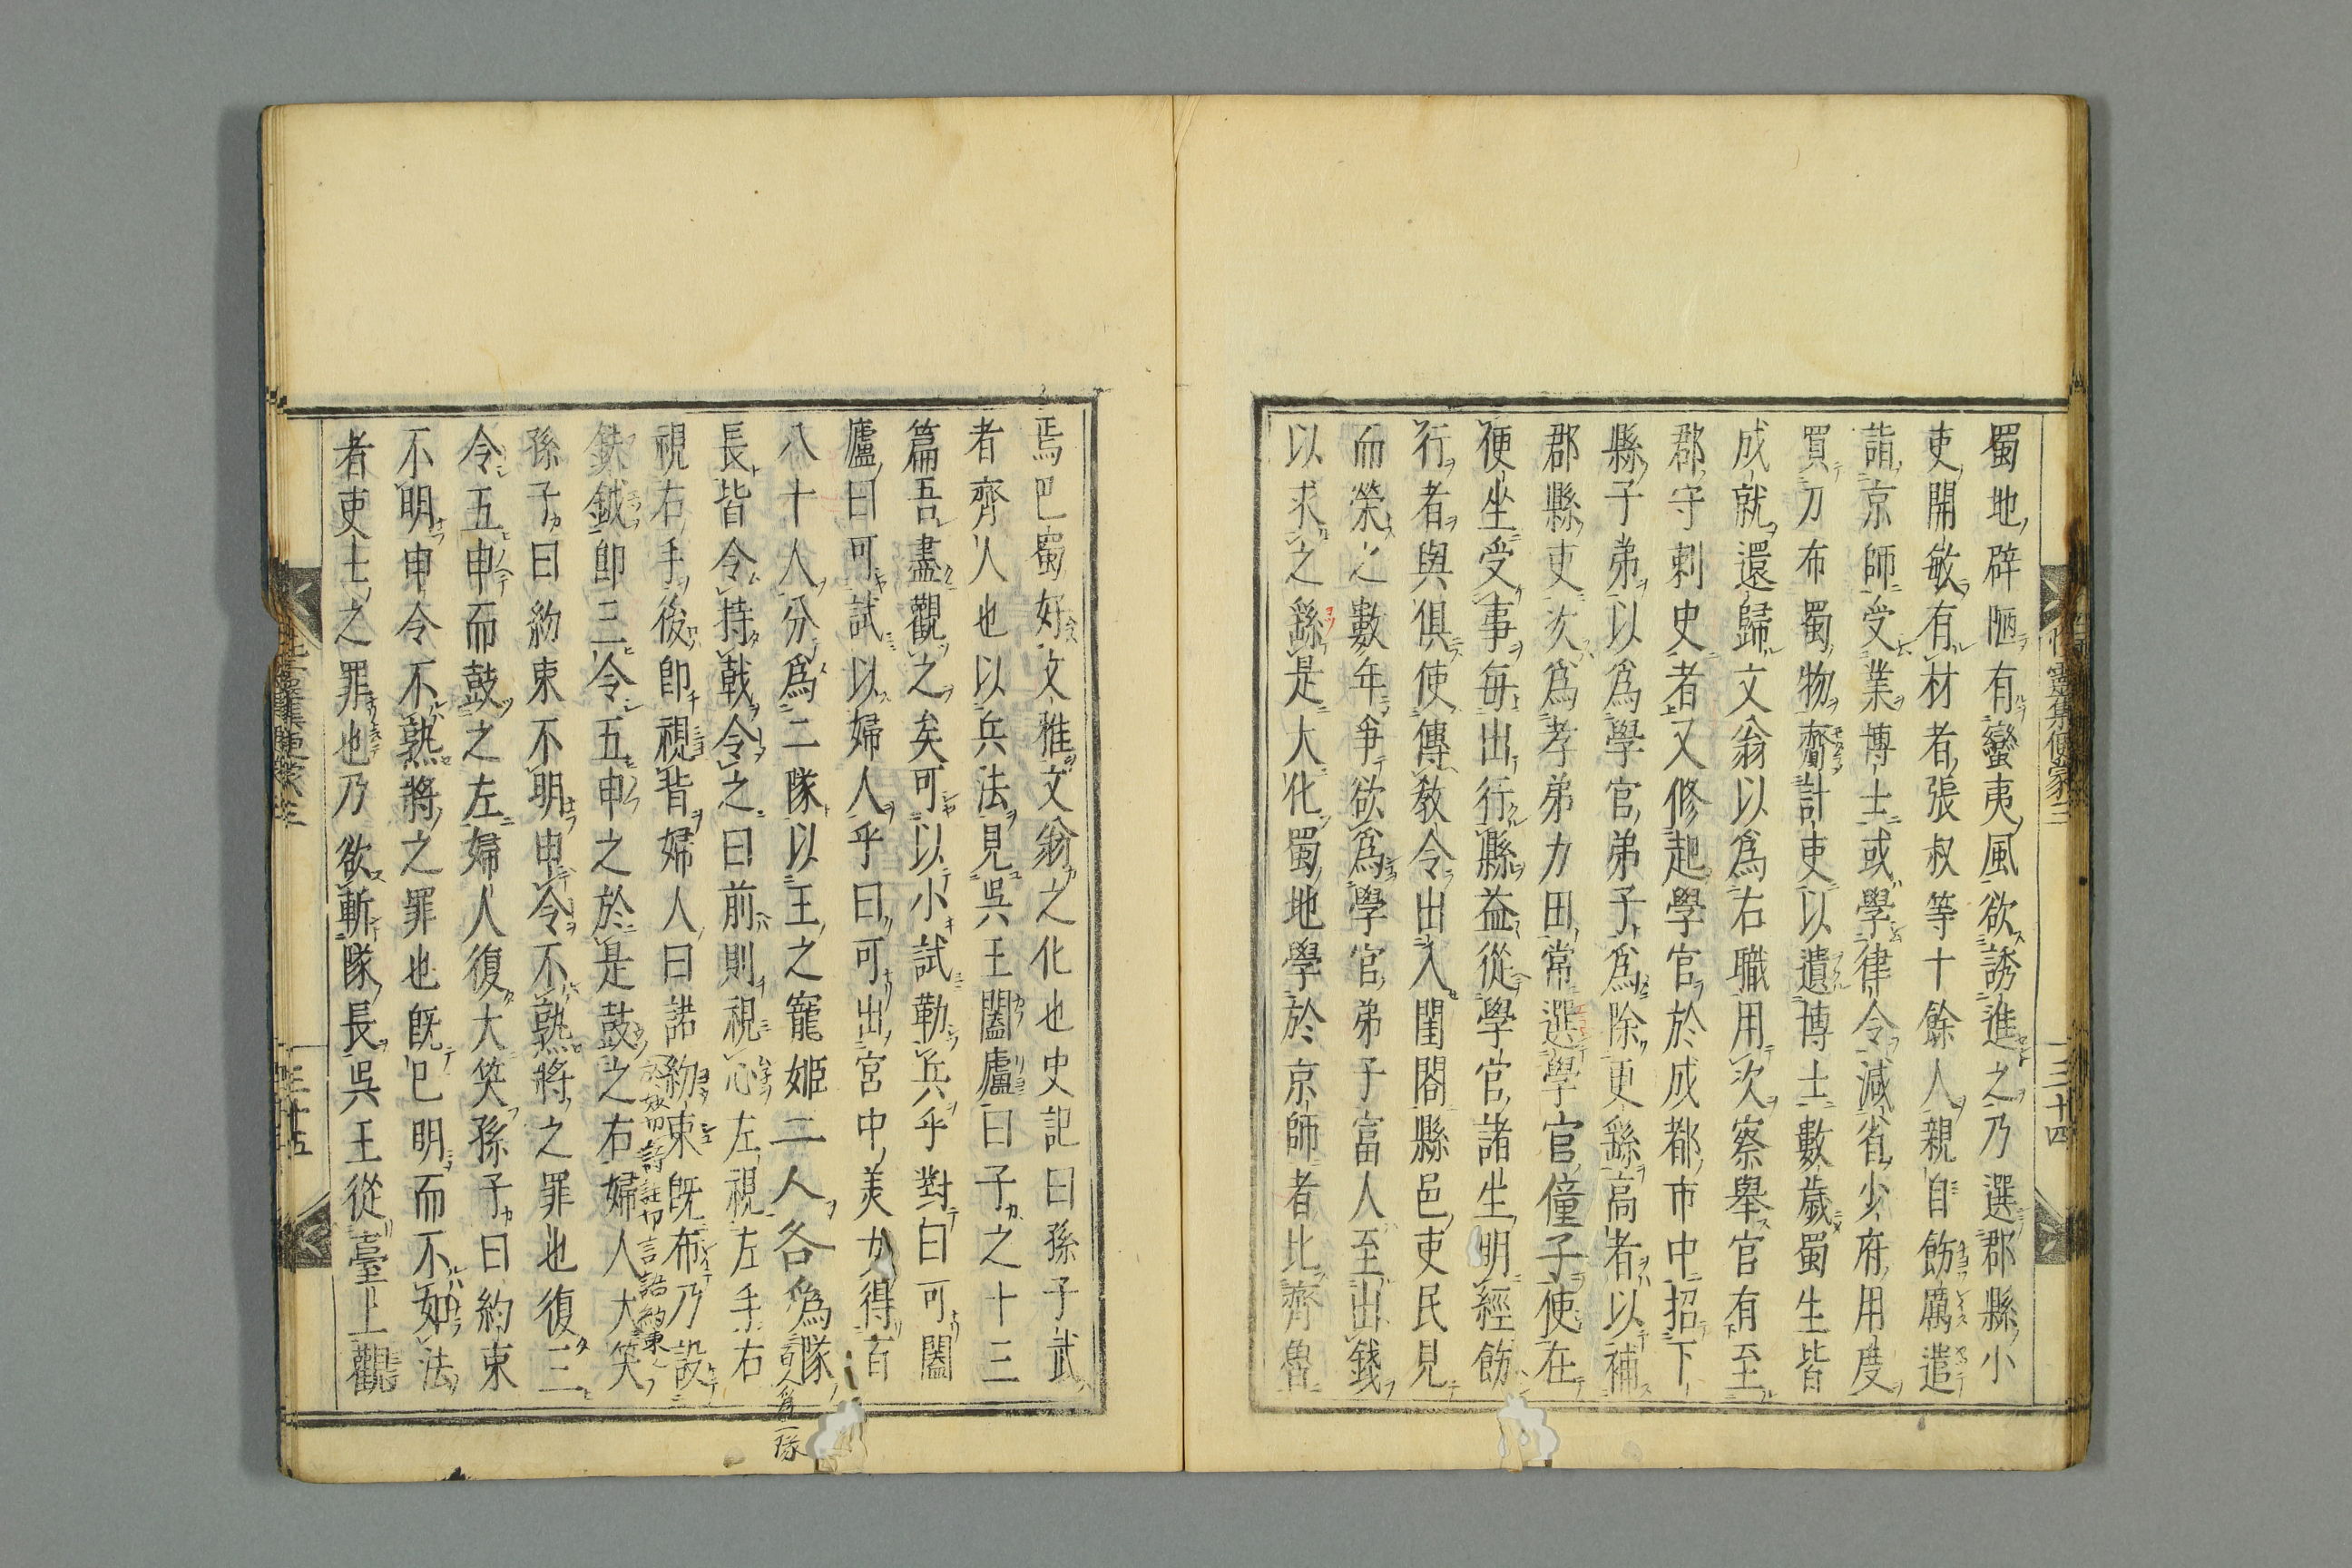 蜀地辟陋有蠻夷風欲誘進之乃選郡縣小
吏開敏有材者張叔等十餘人親自飭厲遣
詣京師受業博士或學律令減省少府用度
買刀布蜀物齎計吏以遺博士數歲蜀生皆
成就還歸文翁以爲右職用次察舉官有至
郡守刺史者又修起學官於成都市中招下
縣子弟以爲學官弟子爲除更繇高者以補
郡縣吏次爲孝弟力田常選學官僮子使在
便坐受事每出行縣益從學官諸生明經飭
行者與俱使傳敎令出入閨閤縣邑吏民見
而榮之數年爭欲爲學官弟子富人至出錢
以求之繇是大化蜀地學於京師者比齊魯
焉巴蜀好文雅文翁之化也史記曰孫子武
者齊人也以兵法見吳王闔廬曰子之十三
篇吾盡觀之矣可以小試勒兵乎對曰可闔
廬曰可試以婦人乎曰可出宮中美女得百
八十人分爲二隊以王之寵姬二人各爲隊
長皆令持戟令之曰前則視心左視左手右
視右手後卽視背婦人曰諾約束旣布乃設
鈇鉞卽三令五申之於是鼓之右婦人大笑
孫子曰約束不明申令不熟將之罪也復三
令五申而鼓之左婦人復大笑孫子曰約束
不明申令不熟將之罪也旣已明而不如法
者吏士之罪也乃欲斬隊長吳王從臺上觀
三十四
三十五